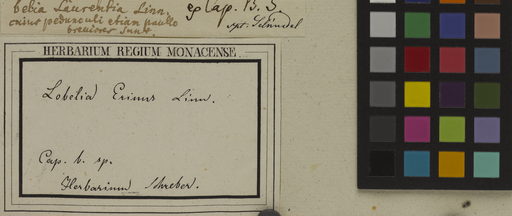 belia Laurentia Linn.
cuius pedunculi etiam paullo
breviores sunt.
ex Cap. B. S.
HERBARIUM REGIUM MONACENSE.
Lobelia Erinus Linn.
Cap. b. sp.
Herbarium Schreber.